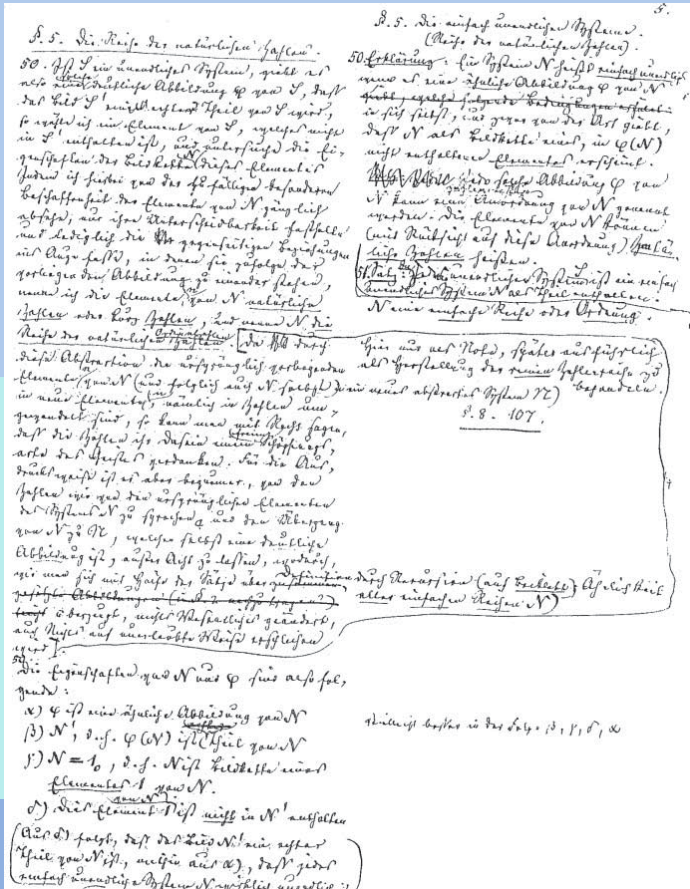 5.
§. 5. Die Reihe der natürlichen Zahlen.
50. Ist S ein unendliches System, giebt es
also eine deutliche Abbildung φ von S, daß
das Bild S' ein echter Theil von S wird,
so wähle ich ein Element von S, welches nicht
in S' enthalten ist, und untersuche die Ei-
genschaften der Bildkette N dieses Elementes
Indem ich hierbei von der zufälligen besonderen
Beschaffenheit der Elemente von N gänzlich
absehe, nur ihre Unterscheidbarkeit festhalte
und lediglich die gegenseitigen Beziehungen
ins Auge fasse, in denen sie zufolge der
vorliegenden Abbildung zu einander stehen,
nenne ich die Elemente von N natürliche
Zahlen oder kurz Zahlen, und nenne N die
Reihe der natürlichen Zahlen. [Da durch
diese Abstraction die ursprünglich vorliegenden
Elemente von N (und folglich auch N selbst) in ein neues abstractes System
in neue Elemente, nämlich in Zahlen um-
gewandelt sind, so kann man mit Recht sagen,
daß die Zahlen ihr Dasein einem Schöpfungs-
acte des Geistes verdanken. Für die Aus-
drucksweise ist es aber bequemer, von den
Zahlen wie von den ursprünglichen Elementen
des Systems N zu sprechen, und den Übergang
von N zu, welcher selbst eine deutliche
Abbildung ist, außer Acht zu lassen, wodurch,
wie man sich mit Hülfe der Sätze über Definition durch Recursion
überzeugt, nichts Wesentliches geändert,
auch Nichts auf unerlaubte Weise erschlichen
wird].
Die Eigenschaften von N und φ sind also fol-
gende:
α) φ ist eine ähnliche Abbildung von N
β) N', d. h. φ(N) ist Theil von N
γ) N = 1₀, d. h. N ist Bildkette eines
Elementes 1 von N.
δ) Dies Element 1 ist nicht in N' enthalten
(Aus δ) folgt, daß das Bild N' ein echter
Theil von N ist, mithin aus α), daß jedes
einfach unendliche System N wirklich unendlich ist
§. 5. Die einfach unendlichen Systeme.
(Reihe der natürlichen Zahlen).
50. Erklärung: Ein System N heißt einfach unendlich
wenn es eine ähnliche Abbildung φ von N
in sich selbst, von der Art giebt,
daß N als Bildkette eines, in φ(N)
nicht enthaltenen Elementes erscheint.
Jede solche Abbildung φ von
N kann eine Anordnung von N genannt
werden. Die Elemente von N können
(mit Rücksicht auf diese Anordnung)
Zahlen heißen.
51. Satz: In jedem unendlichen System S ist ein einfach
unendliches System N als Theil enthalten.
N eine einfache Reihe oder Ordnung.
Hier nur als Note, später ausführlich
als Herstellung der reinen Zahlenreihe zu
behandeln.
§. 8. 107.
aller einfachen Reihen N)
vielleicht besser in der Folge β, γ, δ, α